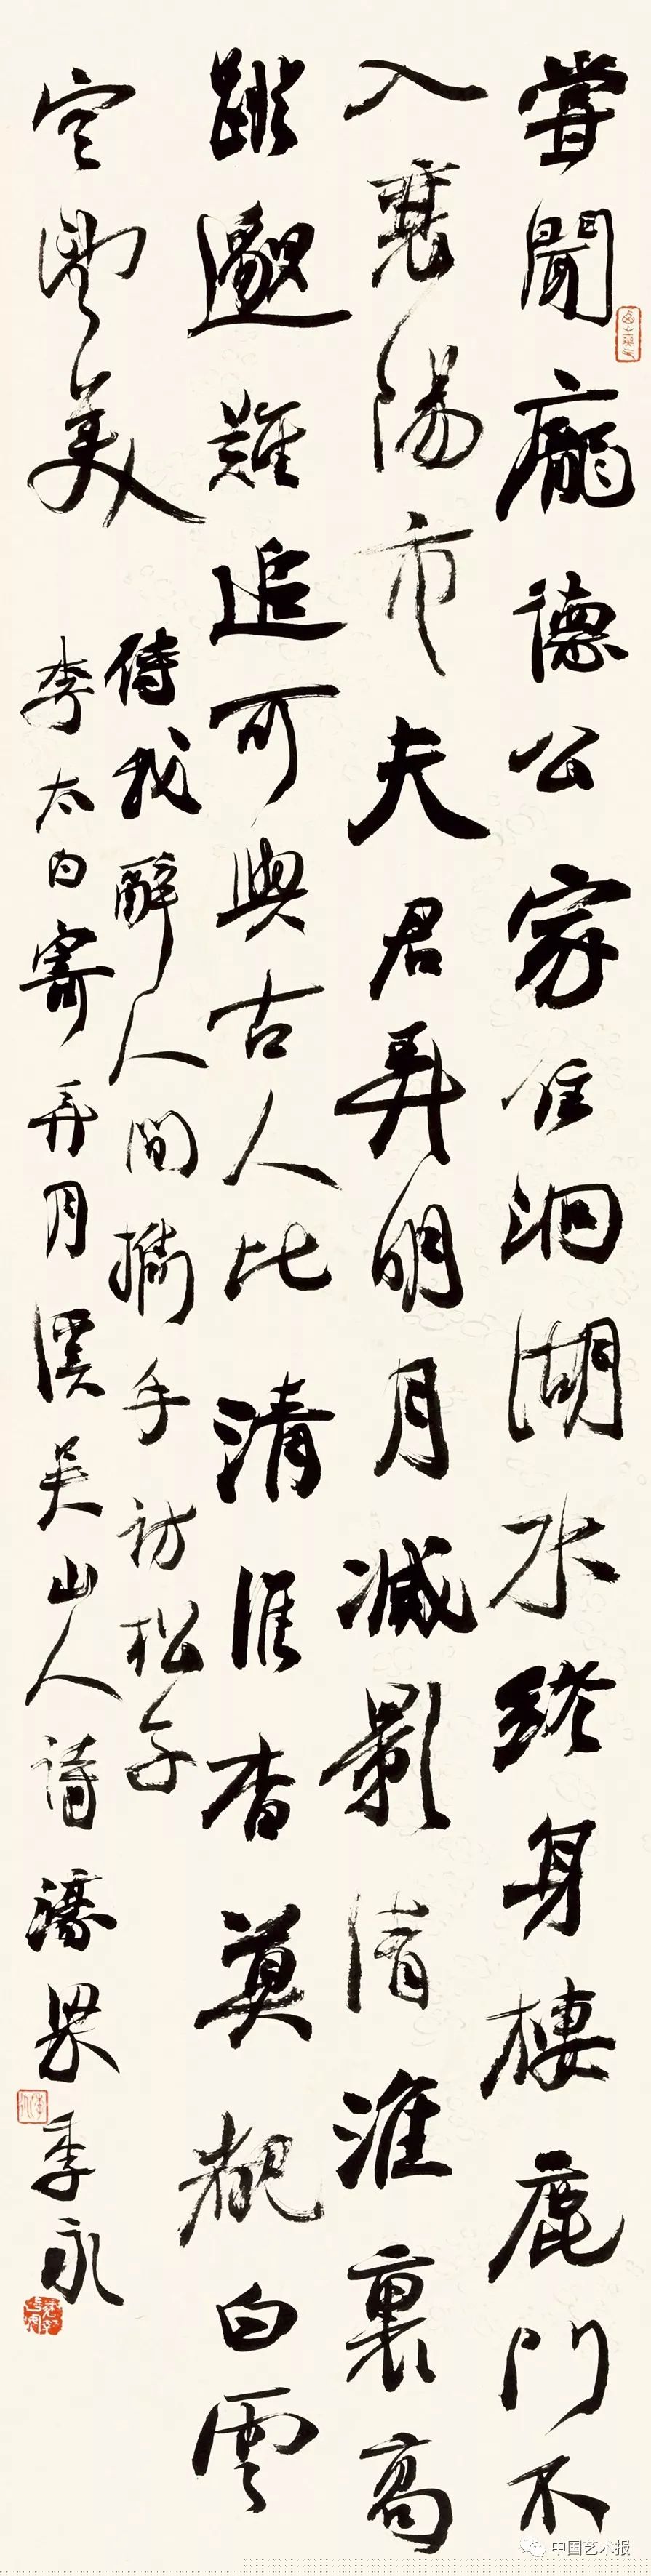 嘗聞龐德公家住洞湖水終身棲鹿門不
入襄陽市夫君弄明月滅影清淮裏高
蹤邈難追可與古人比清杳莫覩白雲
空望美
待我辭人間攜手訪松子
李太白寄弄月溪吳山人詩濠梁季永
中国艺术报